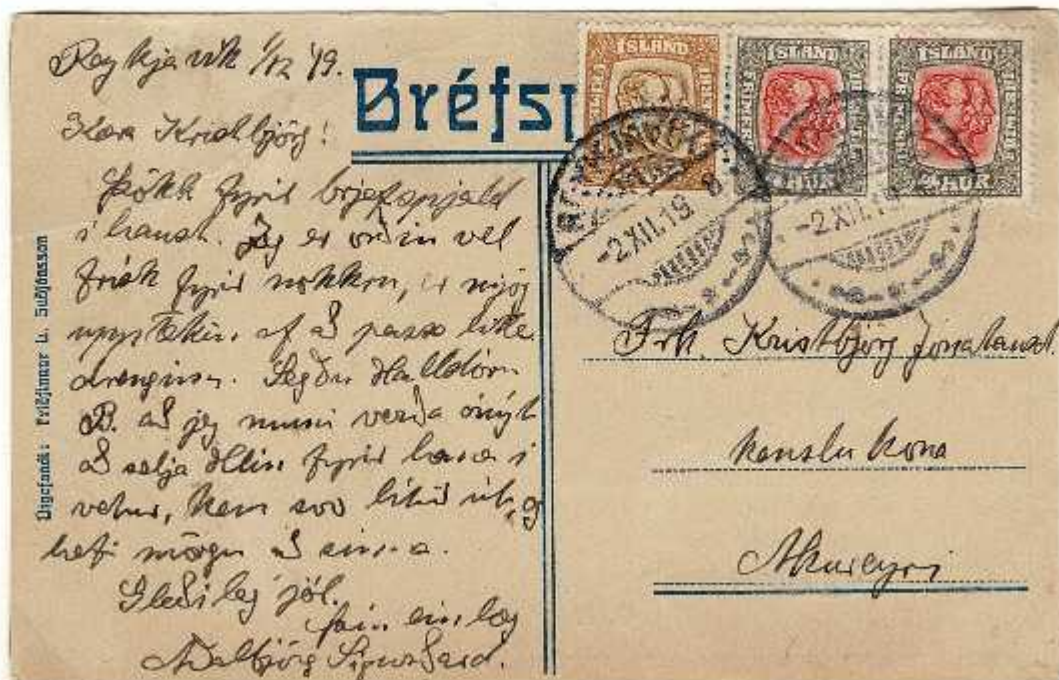 Reykjavík 1/12 '19.
Kæra Kristbjörg!
Þökk fyrir brjefspjald
í haust. Jeg er orðin vel
frísk fyrir nokkru, er mjög
upptekin af að passa litla
drenginn. Segðu Halldóru
B. að jeg muni verða ónýt
að selja Hlín fyrir hana í
vetur, kem svo lítið út, og
hefi mörgu að sinna.
Gleðileg jól.
þín einlæg
Aðalbjörg Sigurðard.
Útgefandi: Friðfinnur L. Guðjónsson
Bréfsp
ÍSLAND
ÍSLAND
ÍSLAND
4 AUR
4 AUR
REYKJAVÍK
-2.XII.19 8
-2.XII.19
Frk. Kristbjörg Jonatansd
Kenslukona
Akureyri